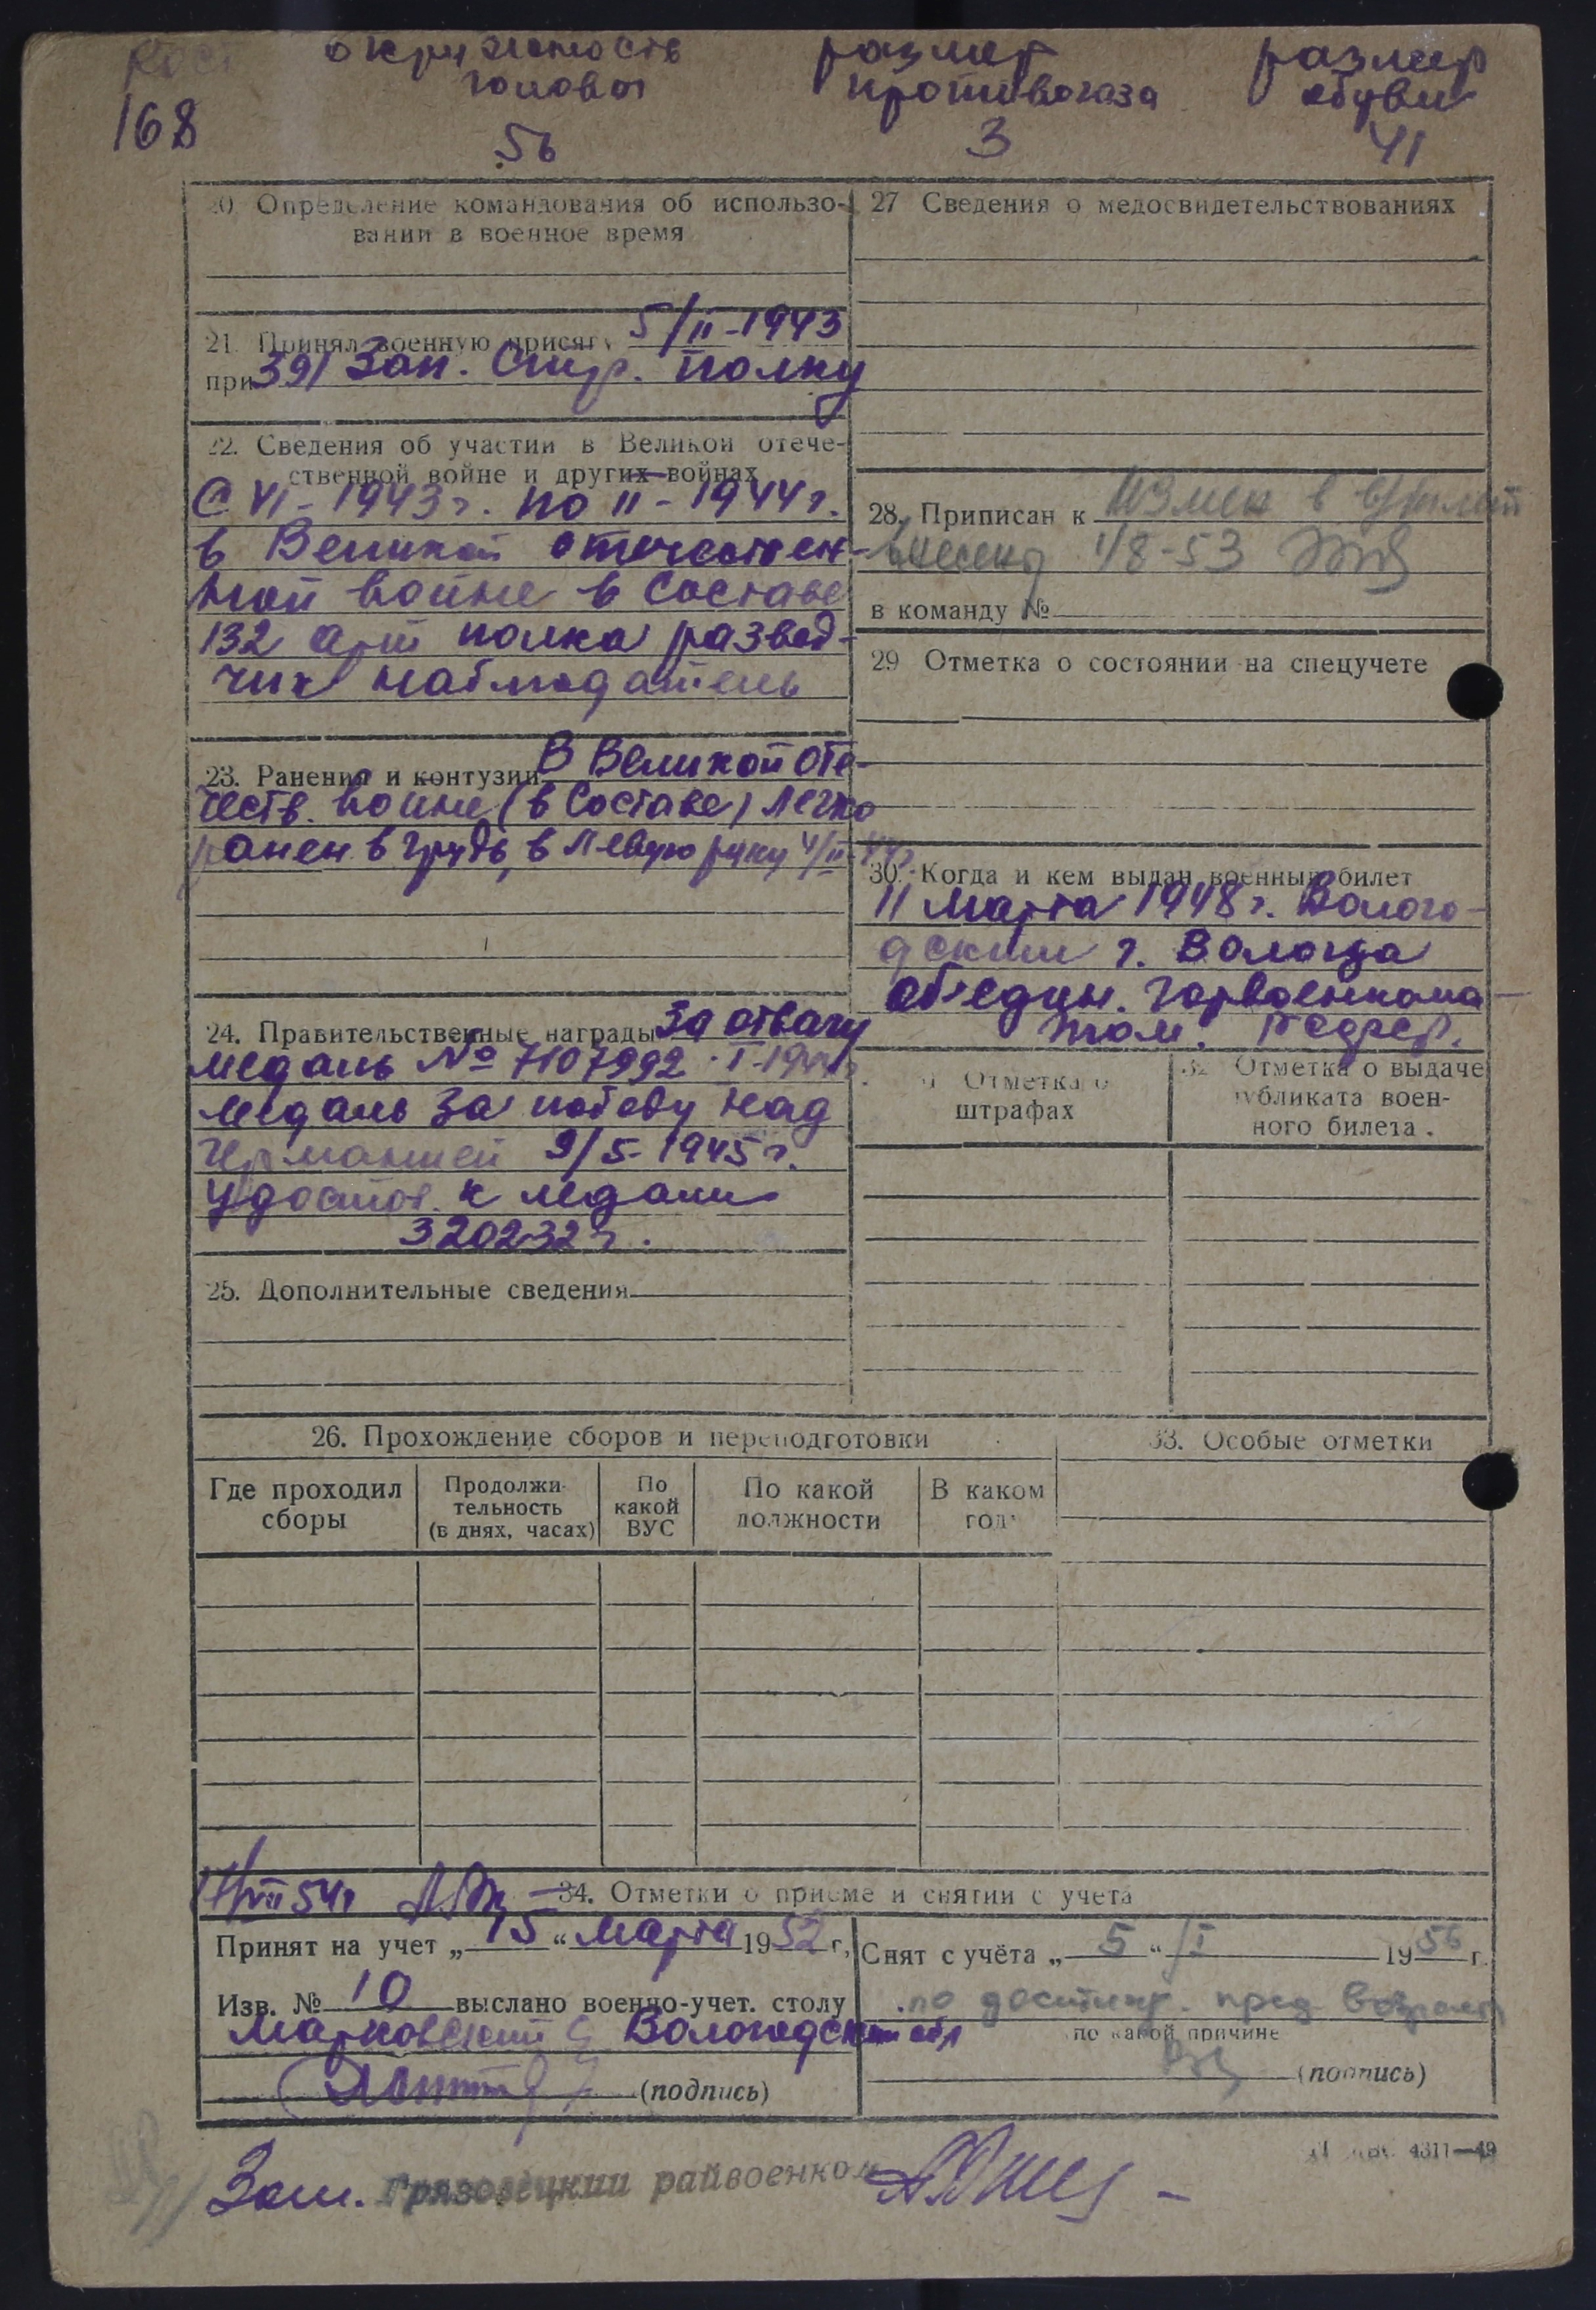 Рост окружность размер размер
головы противогаза обуви
168 56 3 41
20. Определение командования об использо-
вании в военное время
21. Принял военную присягу 5/II-1943
при 391 Зап. Стр. полку
22. Сведения об участии в Великой отече-
ственной войне и других войнах
С VI-1943 г. по II-1944 г.
в Великой отечествен-
ной войне в составе
132 арт полка развед-
чик наблюдатель
23. Ранения и контузии В Великой оте-
честв. войне (в составе) легко
ранен в грудь, в левую руку 4/II-44г.
24. Правительственные награды За отвагу
медаль № 7107992 I-1944г.
медаль За победу над
Германией 9/5-1945 г.
Удостов. к медали
320232
25. Дополнительные сведения
26. Прохождение сборов и переподготовки
Где проходил
сборы
Продолжи-
тельность
(в днях, часах)
По
какой
ВУС
По какой
должности
В каком
году
27 Сведения о медосвидетельствованиях
28. Приписан к
внесены 1/8-53
в команду №
29 Отметка о состоянии на спецучете
30. Когда и кем выдан военный билет
11 марта 1948 г. Волого-
дским г. Вологда
объедин. горвоенкома-
том.
31 Отметка о
штрафах
32 Отметка о выдаче
дубликата воен-
ного билета.
33. Особые отметки
17/VII 54г
34. Отметки о приеме и снятии с учета
Принят на учет „15“ марта 1952 г.,
Изв. № 10 выслано военно-учет. столу
Марковский Вологодской обл
(подпись)
Снят с учёта „5“ /I 1956 г.
по достиж. пред возраста
по какой причине
(подпись)
4311—49
Зам. Грязовецкий райвоенком